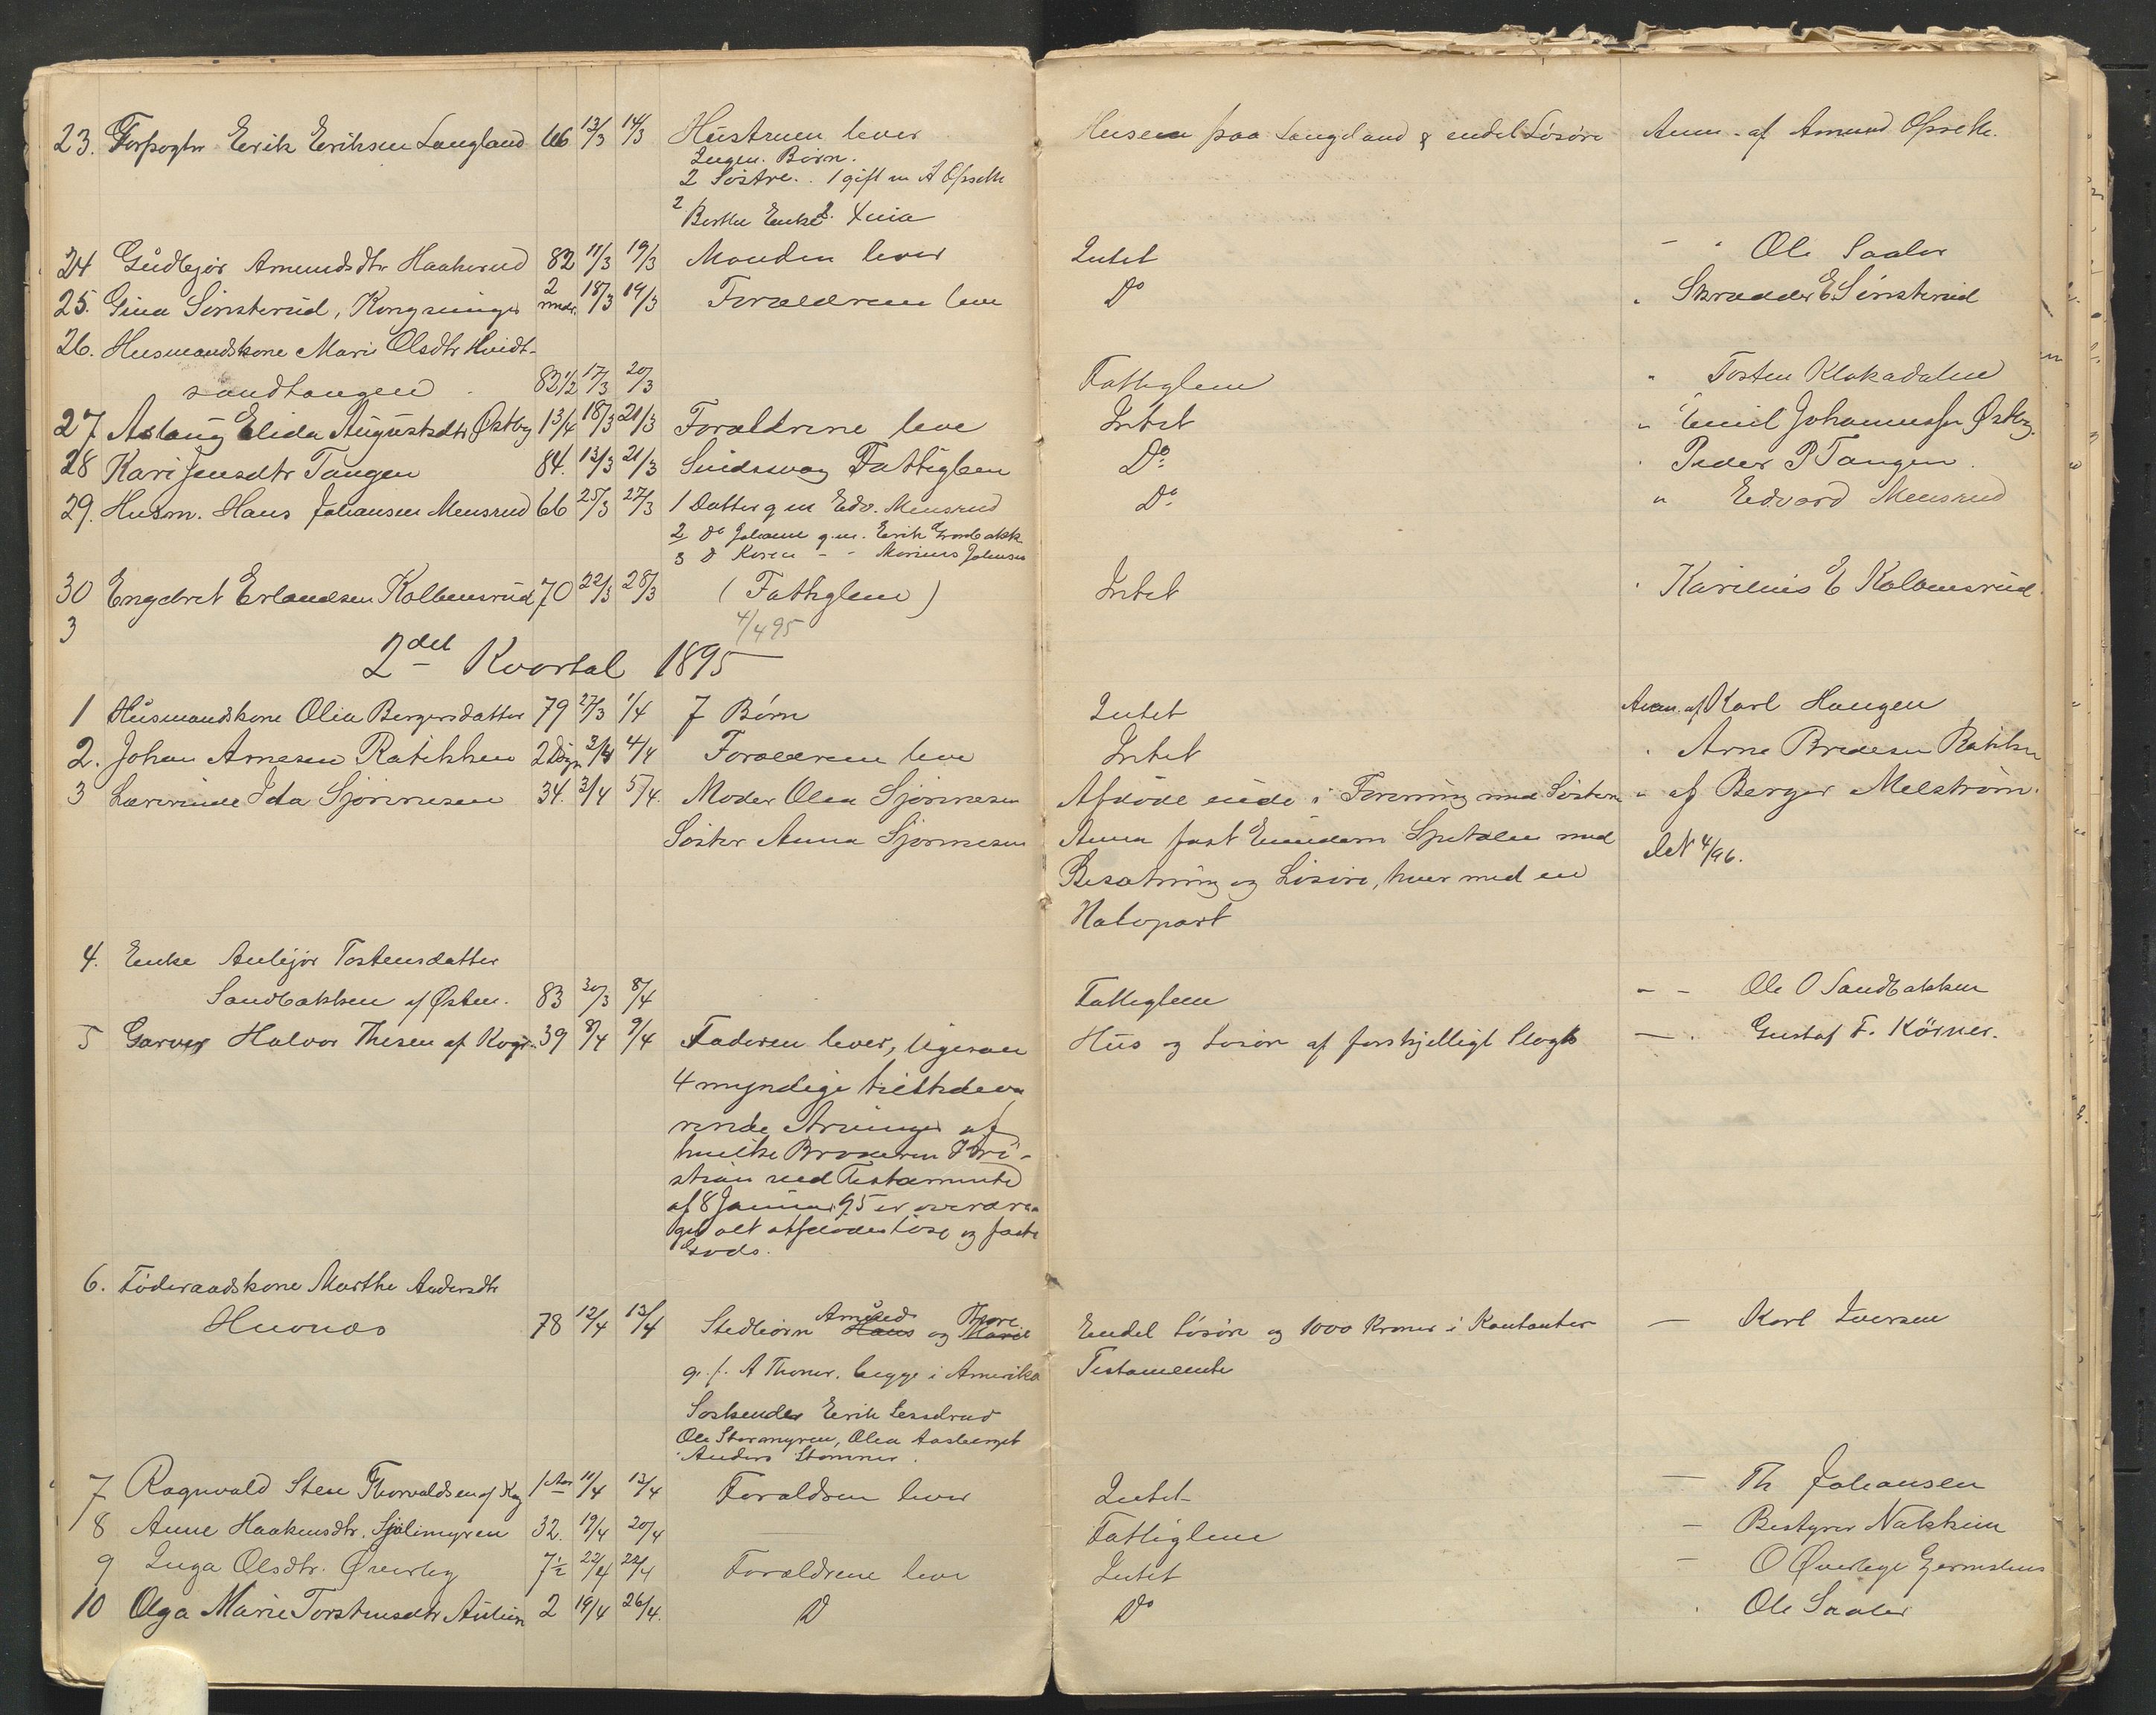 23. Forpagter Erik Eriksen Langland 66 13/3 14/3 Hustruen lever Husene paa Langeland & endel Løsøre Anm. af Amund Opsette
Ingen Børn.
2 Søstre. 1 gift m A Opsette
2 Berthe Enke
24 Gudbjør Amundsdtr Haakerud 82 11/3 19/3 Manden lever Intet - " Ole Saaler
25. Gina Sønsterud, Kongsvinger 2 mndr. 18/3 19/3 Forældrene leve Do " Skrædder E Sønsterud
26. Husmandskone Mari Olsdtr Hvidt-
sandtangen 82 1/2 17/3 20/3 Fattiglem " Tosten Klokadalen
27 Aslaug Elida Augustsdtr Østby 1 3/4 18/3 21/3 Forældrene leve Intet " Emil Johannessen Østby.
28 Kari Jensdtr Tangen 84. 13/3 21/3 Sindssvag Fattiglem Do " Peder P Tangen.
29. Husm. Hans Johansen Mensrud 66 25/3 27/3 1 Datter g m Edv. Mensrud Do " Edvard Mensrud
2 do Johanne g. m. Erik
3 d Karen - - Marius Johnsen
30 Engebret Erlandsen Kolbensrud 70 22/3 28/3 (Fattiglem) Intet " Karinius E Kolbensrud.
3 4/4 95
2det Kvartal 1895
1 Husmandskone Olia Bergersdatter 79 27/3 1/4 7 Børn Intet Anm. af Karl Haugen
2. Johan Arnesen Ratikken 2 Døgn 3/4 4/4 Forældrene leve Intet " Arne Bredesen
3 Lærerinde Ida Sjørnesen 34. 3/4 5/4. Moder Olea Sjørnesen Afdøde eiede i Forening med Søsteren " af Berger Melstrøm.
Søster Anna Sjørnesen Anna fast Eiendom Spetalen med det 4/96.
Besætning og Løsøre, hver med en
Halvpart
4. Enke Anlejør Tostensdatter
Sandbakken af Østen. 83 30/3 8/4 Fattiglem - - Ole O Sandbakken
5 Garver Halvor Thesen af Kvgr. 39 8/4 9/4 Faderen lever, ligesaa Hus og Løsøre af forskjelligt Slags - Gustaf F. Körner.
4 myndige tilstedevæ
rende Arvinger af
hvilke Broderen Kri-
stian ved Testamente
af 8 Januar 95 er overdra-
get alt afdødes løse og faste
Gods.
6. Føderaadskone Marthe Andersdtr
Huvnæs 78 12/4 13/4 Stedbørn Amund Hans og Thore Marie Endel Løsøre og 1000 Kroner i Kontanter - Karl Iversen
g. f. A Thoner. begge i Amerika Testamente
Søskende Erik
Ole Stormyren, Olea Aasberget
Anders Stommer.
7 Ragnvald Sten Thorvaldsen af Kvg 1 Aar 11/4 13/4 Forældren lever Intet - Th Johansen
8 Anne Haakensdtr. Sjølimyren 32. 19/4 20/4 Fattiglem - Bestyrer Nakkim
9 Inga Olsdtr. Øverby 7 1/2 22/4 22/4 Forældrene leve Intet - O Øverbye
10 Olga Marie Torstensdtr Aulien 2 19/4 26/4. D Do " Ole Saaler